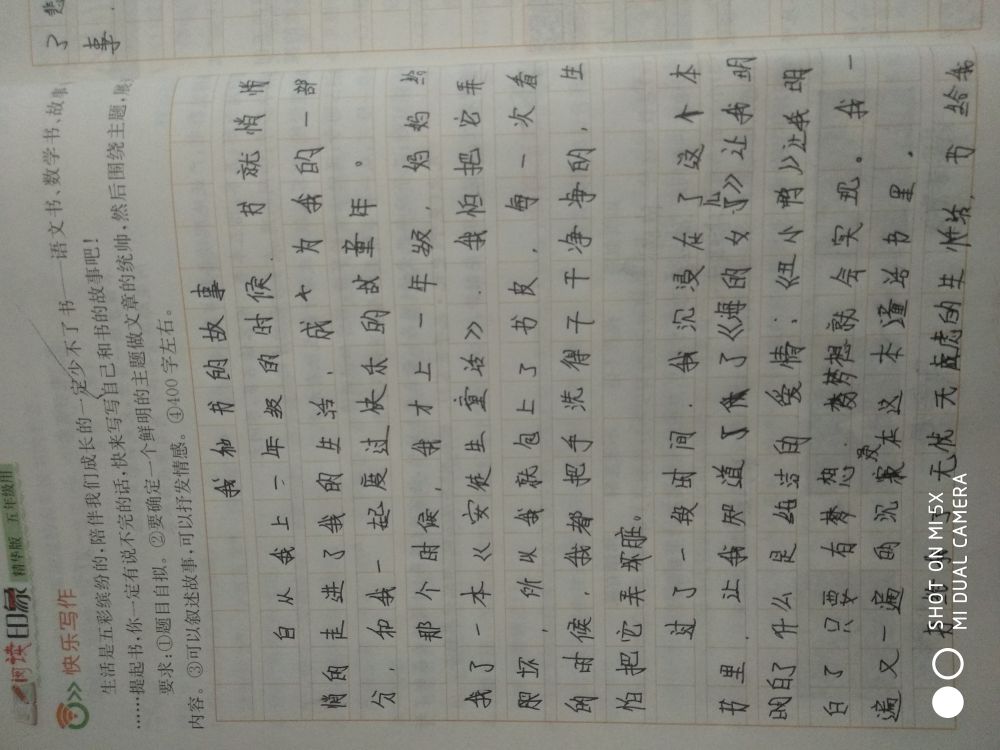 阅读印象 精华版 五年级用
快乐写作
生活是五彩缤纷的,陪伴我们成长的一定少不了书——语文书、数学书、故事
……提起书,你一定有说不完的话,快来写写自己和书的故事吧!
要求:①题目自拟。②要确定一个鲜明的主题做文章的统帅,然后围绕主题,
内容。③可以叙述故事,可以抒发情感。④400字左右。
我和书的故事
自从我上一年级的时候.书就悄悄
悄的走进了我的生活.成为我的一部
分,和我一起度过快乐的故童年。
那个时候,我才上一年级.妈妈给
我了一本《安徒生童话》.我怕把它弄
脏坏,所以我就包上了书皮,每一次看
的时候,我都把手洗得干干净净的,生
怕把它弄坏脏。
过了一段时间.我沉浸在了这个本
书里.让我知道了《海的女儿》让我明
的白了什么是纯洁的爱情:《丑小鸭》让我明
白了只要有梦想.梦想就会实现。我一
遍又一遍的沉在这本童话书里.
无忧无虑的生活.书给我
了
事
SHOT ON MI 5X
MI DUAL CAMERA